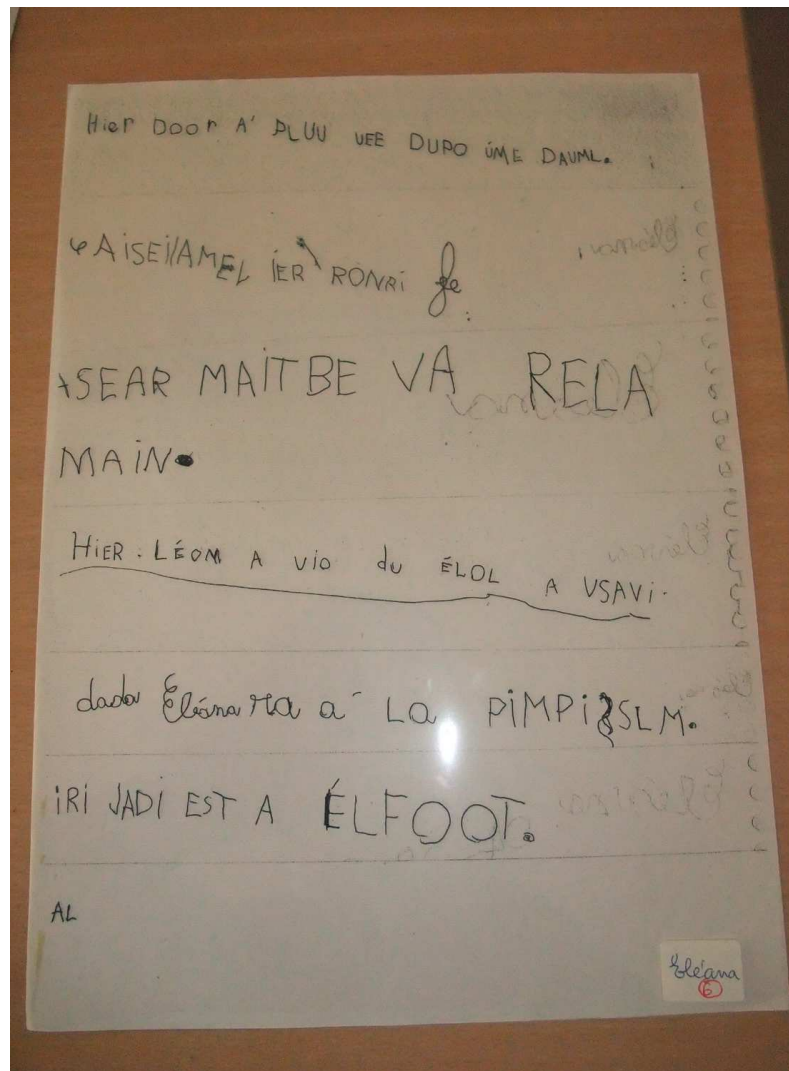 Hier DOOr A' PLUU UEE DUPO ÚME DAUML.
IER RONRi
SEAR MAiTBE VA RELA
MAiN.
HiER. LÉOM A Vio du ÉLOL A VSAVi.
dada Eléana à LA PiMPi SLM.
iRi JADi EST A ÉLFOOT.
AL
Eléana
6